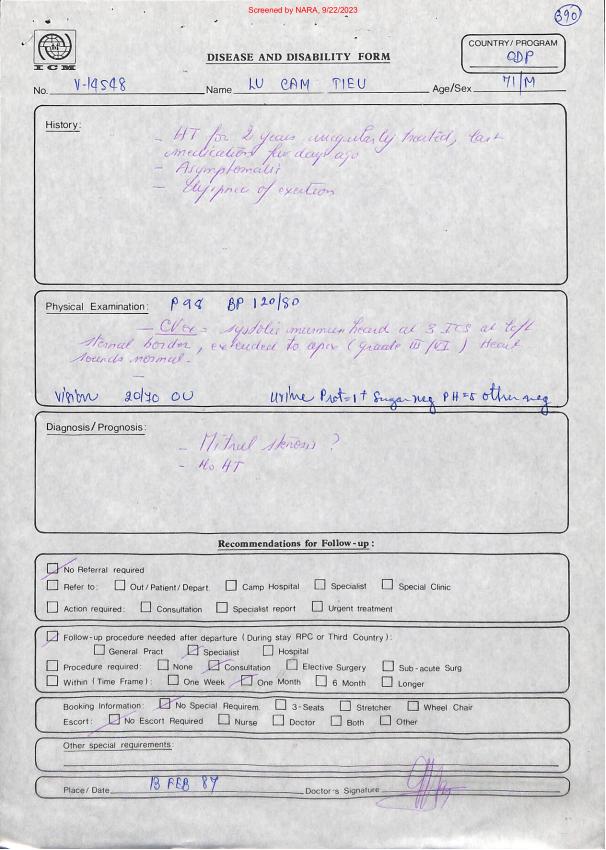 Screened by NARA, 9/22/2023
390
ICM
DISEASE AND DISABILITY FORM
COUNTRY/PROGRAM
ODP
No. V-14548 Name LU CAM TIEU Age/Sex 71/M
History:
- HT for 2 years irregularly treated, last
medication few days ago
- Asymptomatic
- Dyspnee of exertion
Physical Examination: P 98 BP 120/80
- CV ex = systolic murmur heard at 3 ICS at left
sternal border, extended to apex (grade III/VI) Heart
sounds normal.
-
Vision 20/70 OU Urine Prot=1+ Sugar neg PH=5 other neg
Diagnosis/Prognosis:
- Mitral stenosis ?
- Ho HT
Recommendations for Follow-up:
No Referral required
Refer to: Out/Patient/Depart. Camp Hospital Specialist Special Clinic
Action required: Consultation Specialist report Urgent treatment
Follow-up procedure needed after departure (During stay RPC or Third Country):
General Pract Specialist Hospital
Procedure required: None Consultation Elective Surgery Sub-acute Surg
Within (Time Frame): One Week One Month 6 Month Longer
Booking Information: No Special Requirem. 3-Seats Stretcher Wheel Chair
Escort: No Escort Required Nurse Doctor Both Other
Other special requirements:
Place/Date 13 FEB 87 Doctor's Signature